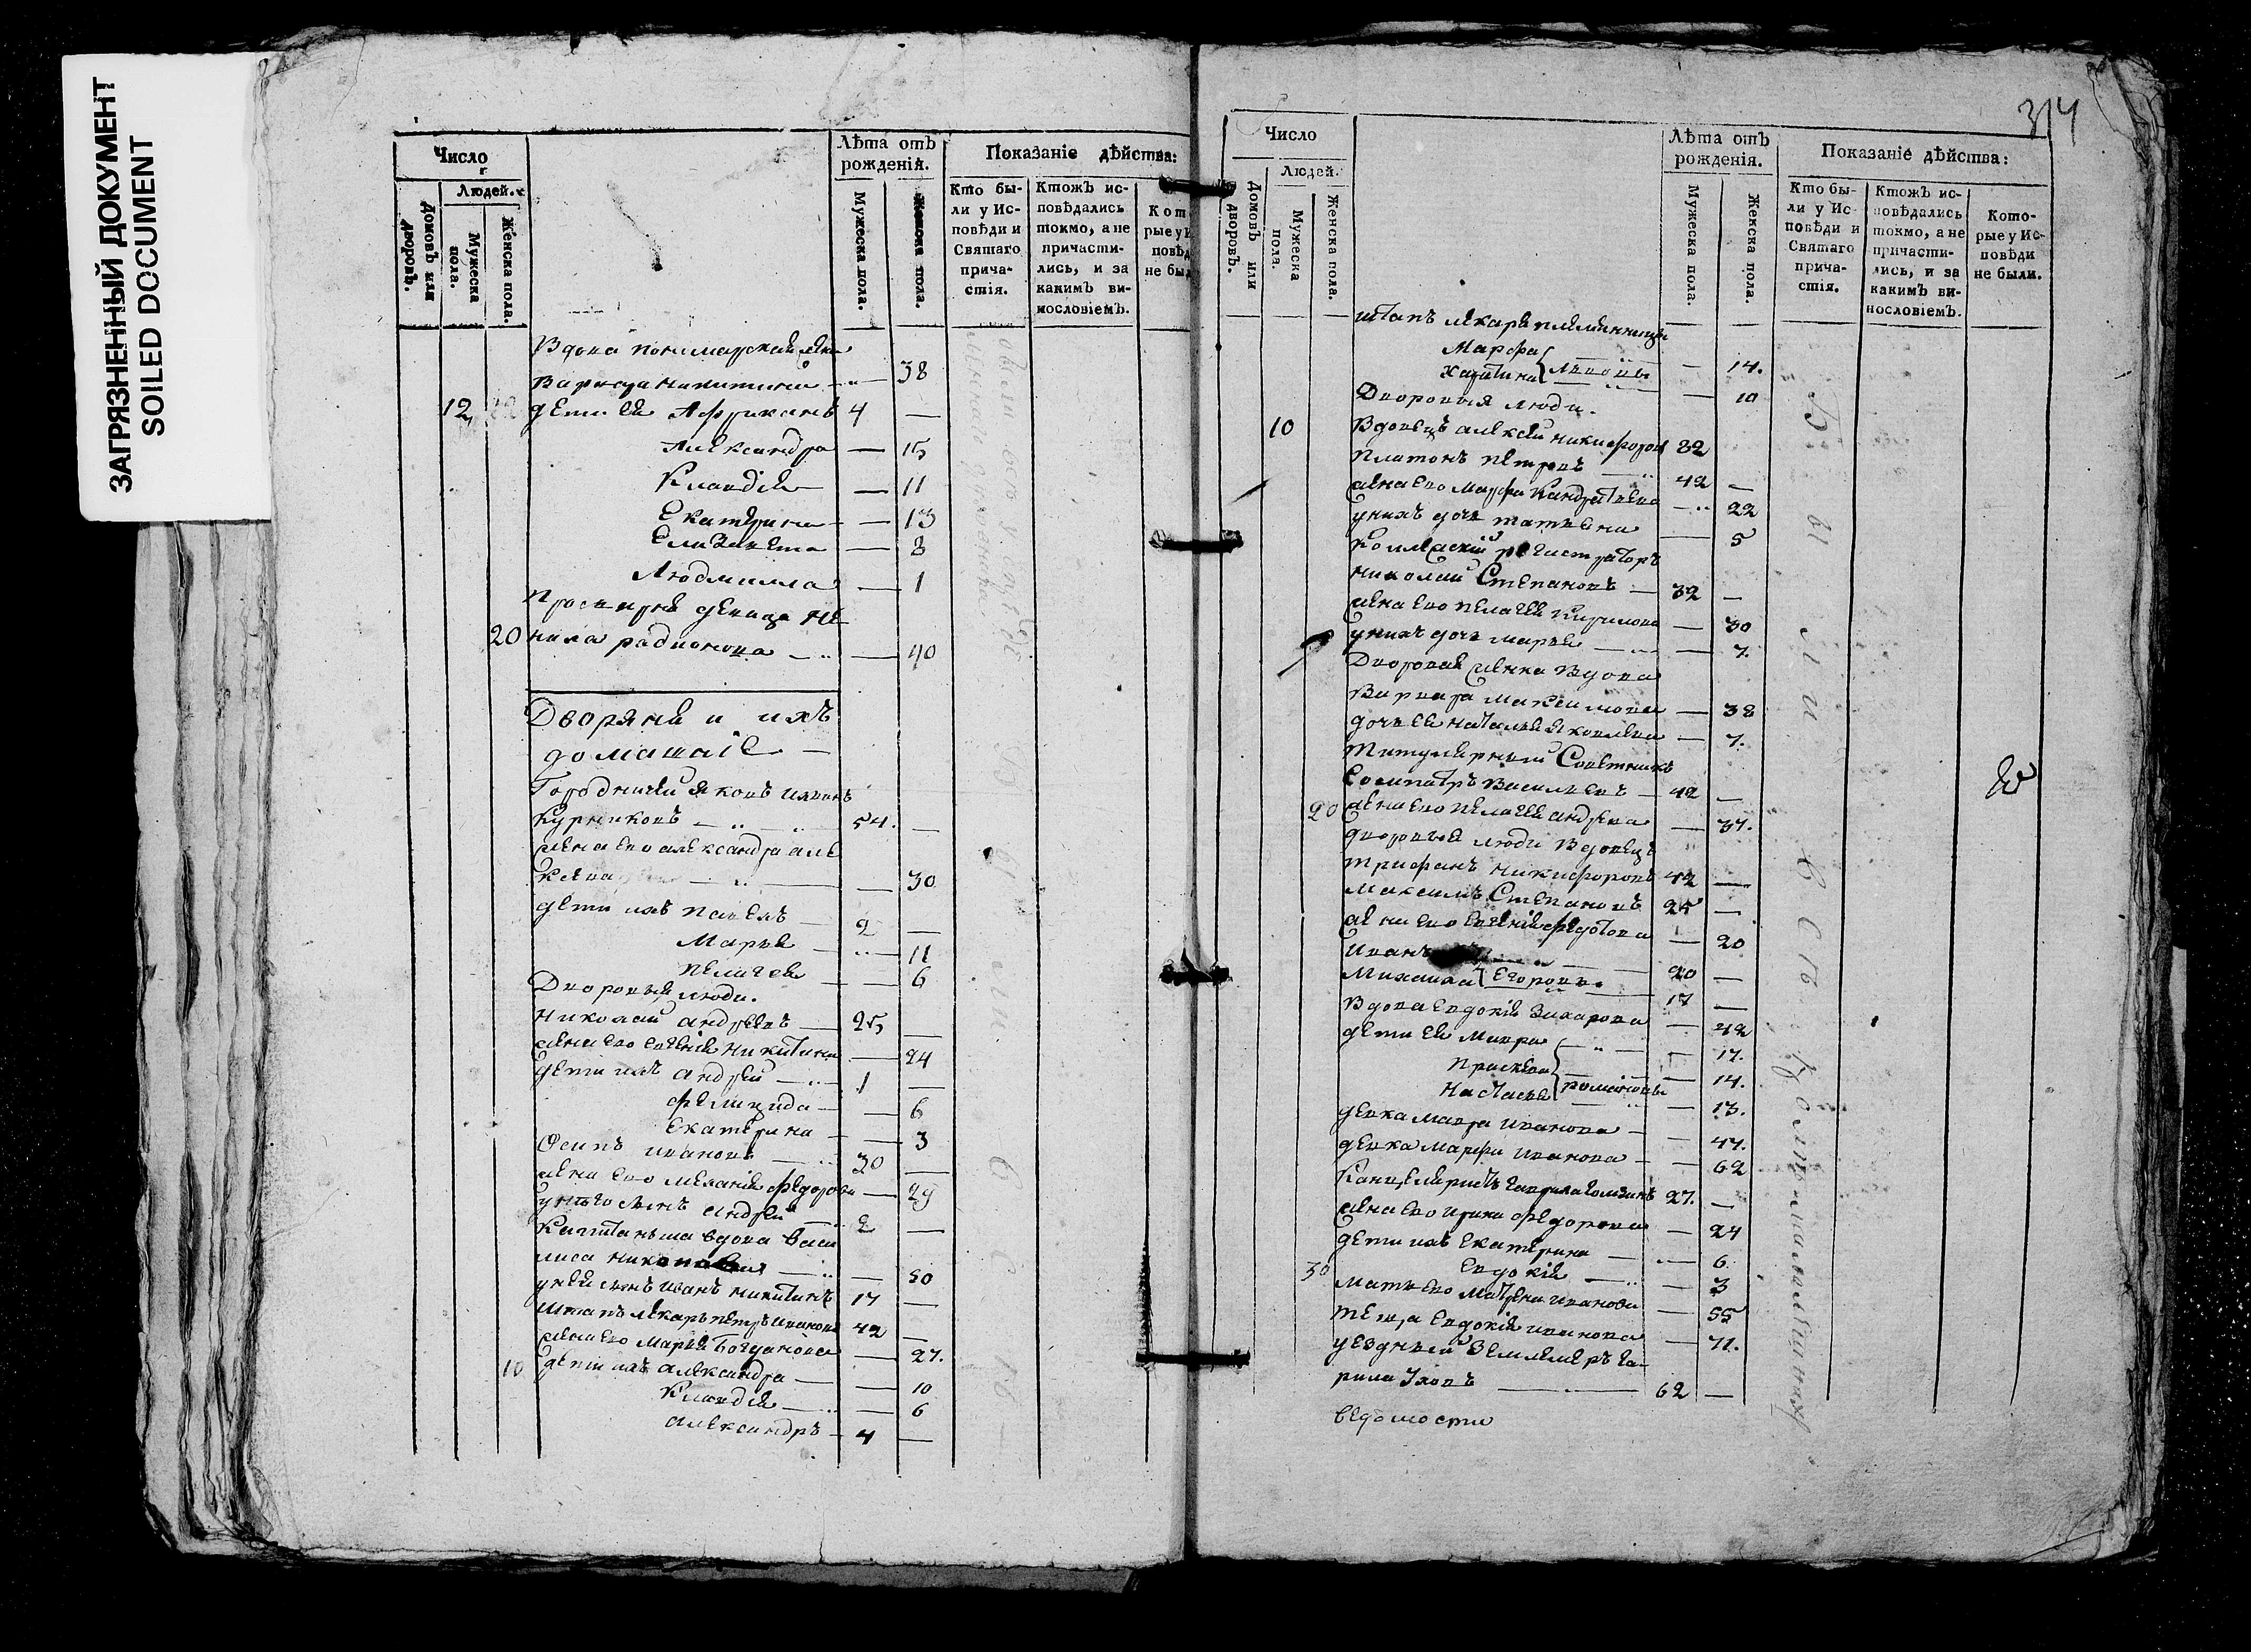 ЗАГРЯЗНЕННЫЙ ДОКУМЕНТ
SOILED DOCUMENT
Число
Людей.
Домовъ или дворовъ.
Мужеска пола.
Женска пола.
Лѣта отъ рожденія.
Мужеска пола.
Женска пола.
Показаніе дѣйства:
Кто бы-
ли у Ис-
повѣди и
Святаго
прича-
стія.
Ктожъ ис-
повѣдались
токмо, а не
причасти-
лись, и за
какимъ ви-
нословіемъ.
Кот
рые у И
повѣд
не бы
Вдова пономарская жена
Варвара Никитина 38
12 дети ея Африканъ 4 —
Александра — 15
Клавдія — 11
Екатерина — 13
Елизавета — 8
Людмилла — 1
Просвирня девица Не
20 нила радионова — 40
Дворяня и ихъ
домашніе —
Городничей яковъ
54. —
жена ево александра але
ксѣева — 30
дети ихъ павелъ — 2 —
Марья — 11
пелагея — 6
Дворовыя люди.
Николай андреевъ — 25 —
жена ево евгенія Никитина — 24
дети ихъ андрей — 1 —
фелицида — 6
Екатерина — 3
Осипъ ивановъ 30 —
жена ево меланія федорова — 29
у него сынъ андрей 2 —
Капитанша вдова Васи
лиса — 50
у ней сынъ иванъ никитинъ 17 —
Штапъ лекарь петръ ивановъ 42 —
жена ево Марья Богданова — 27.
10 дети ихъ александра — 10
Клавдія — 6
александръ — 4 —
314
Число
Людей.
Домовъ или дворовъ.
Мужеска пола.
Женска пола.
Лѣта отъ рожденія.
Мужеска пола.
Женска пола.
Показаніе дѣйства:
Кто бы-
ли у Ис-
повѣди и
Святаго
прича-
стія.
Ктожъ ис-
повѣдались
токмо, а не
причасти-
лись, и за
какимъ ви-
нословіемъ.
Кото-
рые у Ис-
повѣди
не были.
штапъ лекаря племянницы
Марфа — 14.
Харитина — 10
Дворовыя люди.
10 Вдовецъ алексей никифоровъ 32
платонъ петровъ 42 —
жена ево марфа Кандратьева — 22
у нихъ дочь татьяна — 5
Коллежскій регистраторъ
николай Степановъ — 32 —
жена ево пелагея Кирилова — 30
у нихъ дочь марья — 7.
Дворовая женка Вдова
Варвара максимова — 38
дочь ея наталья яковлева — 7.
титулярный Советникъ
Васильевъ — 42 —
20 жена ево пелагея андреева — 37.
дворовыя люди Вдовецъ
трифанъ никифоровъ 42 —
максимъ Степановъ 25 —
жена ево евгенія федотова — 20
иванъ 20 —
Михаила Егоровы 17 —
Вдова евдокія Захарова — 42
дети ея мавра — 17.
прасковья — 14.
Настасья романовы — 13.
девка мавра иванова — 47.
девка марфа иванова — 62
Канцеляристъ гаврила 27. —
жена ево ирина федорова — 24
дети ихъ екатерина — 6
30 евдокія — 3
мать ево матрена иванова — 55
теща евдокія иванова — 71.
уездный Землемеръ га-
рила — 62 —
ведомости
Были